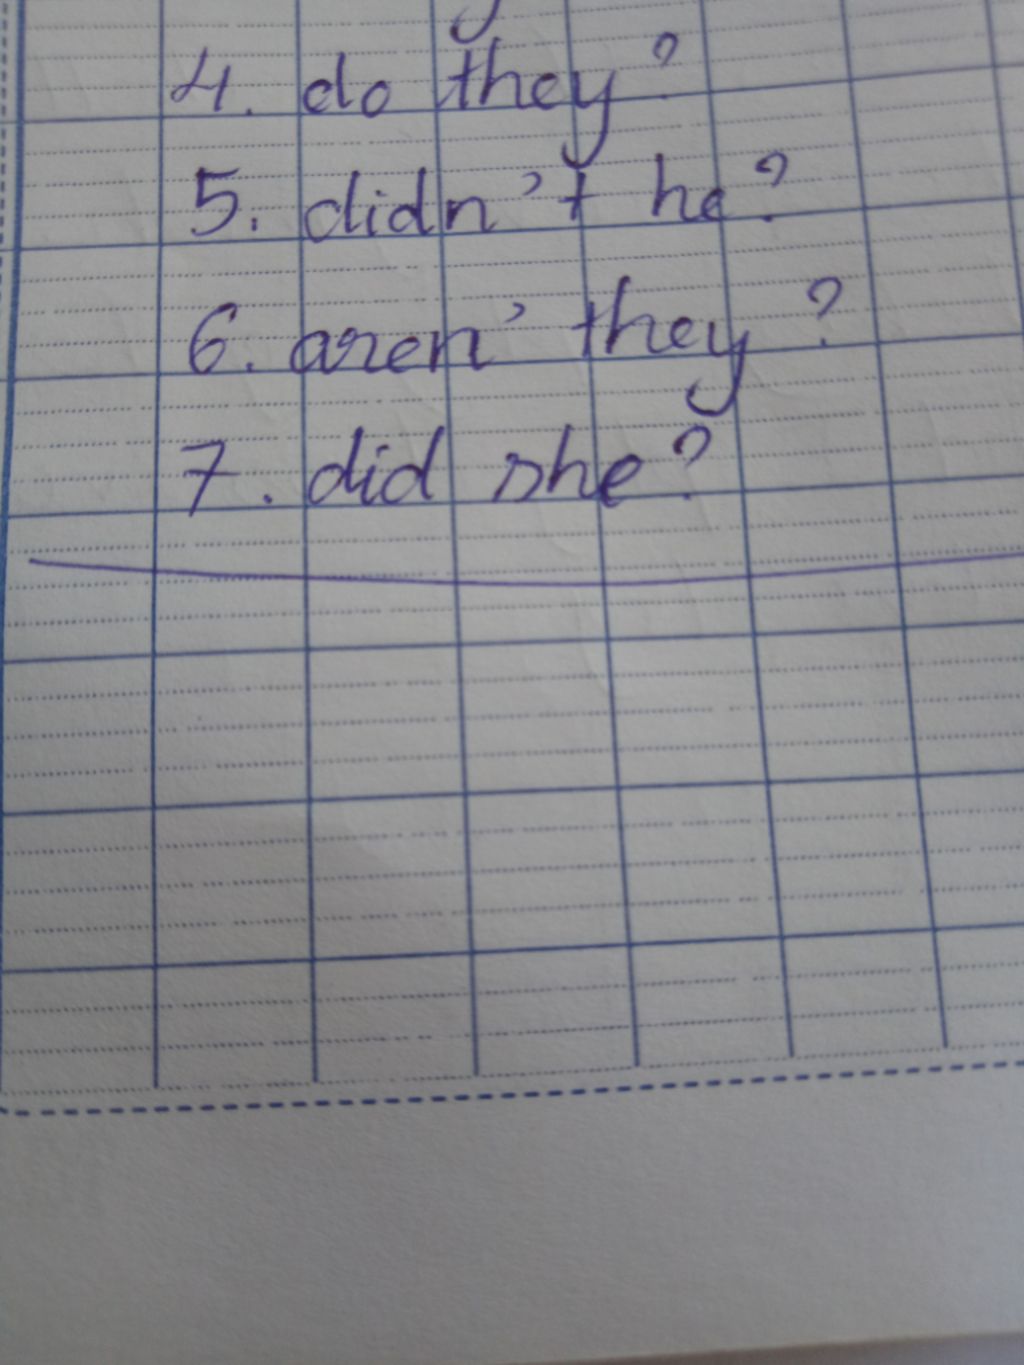 4. do they?
5. didn't he?
6. aren' they?
7. did she?